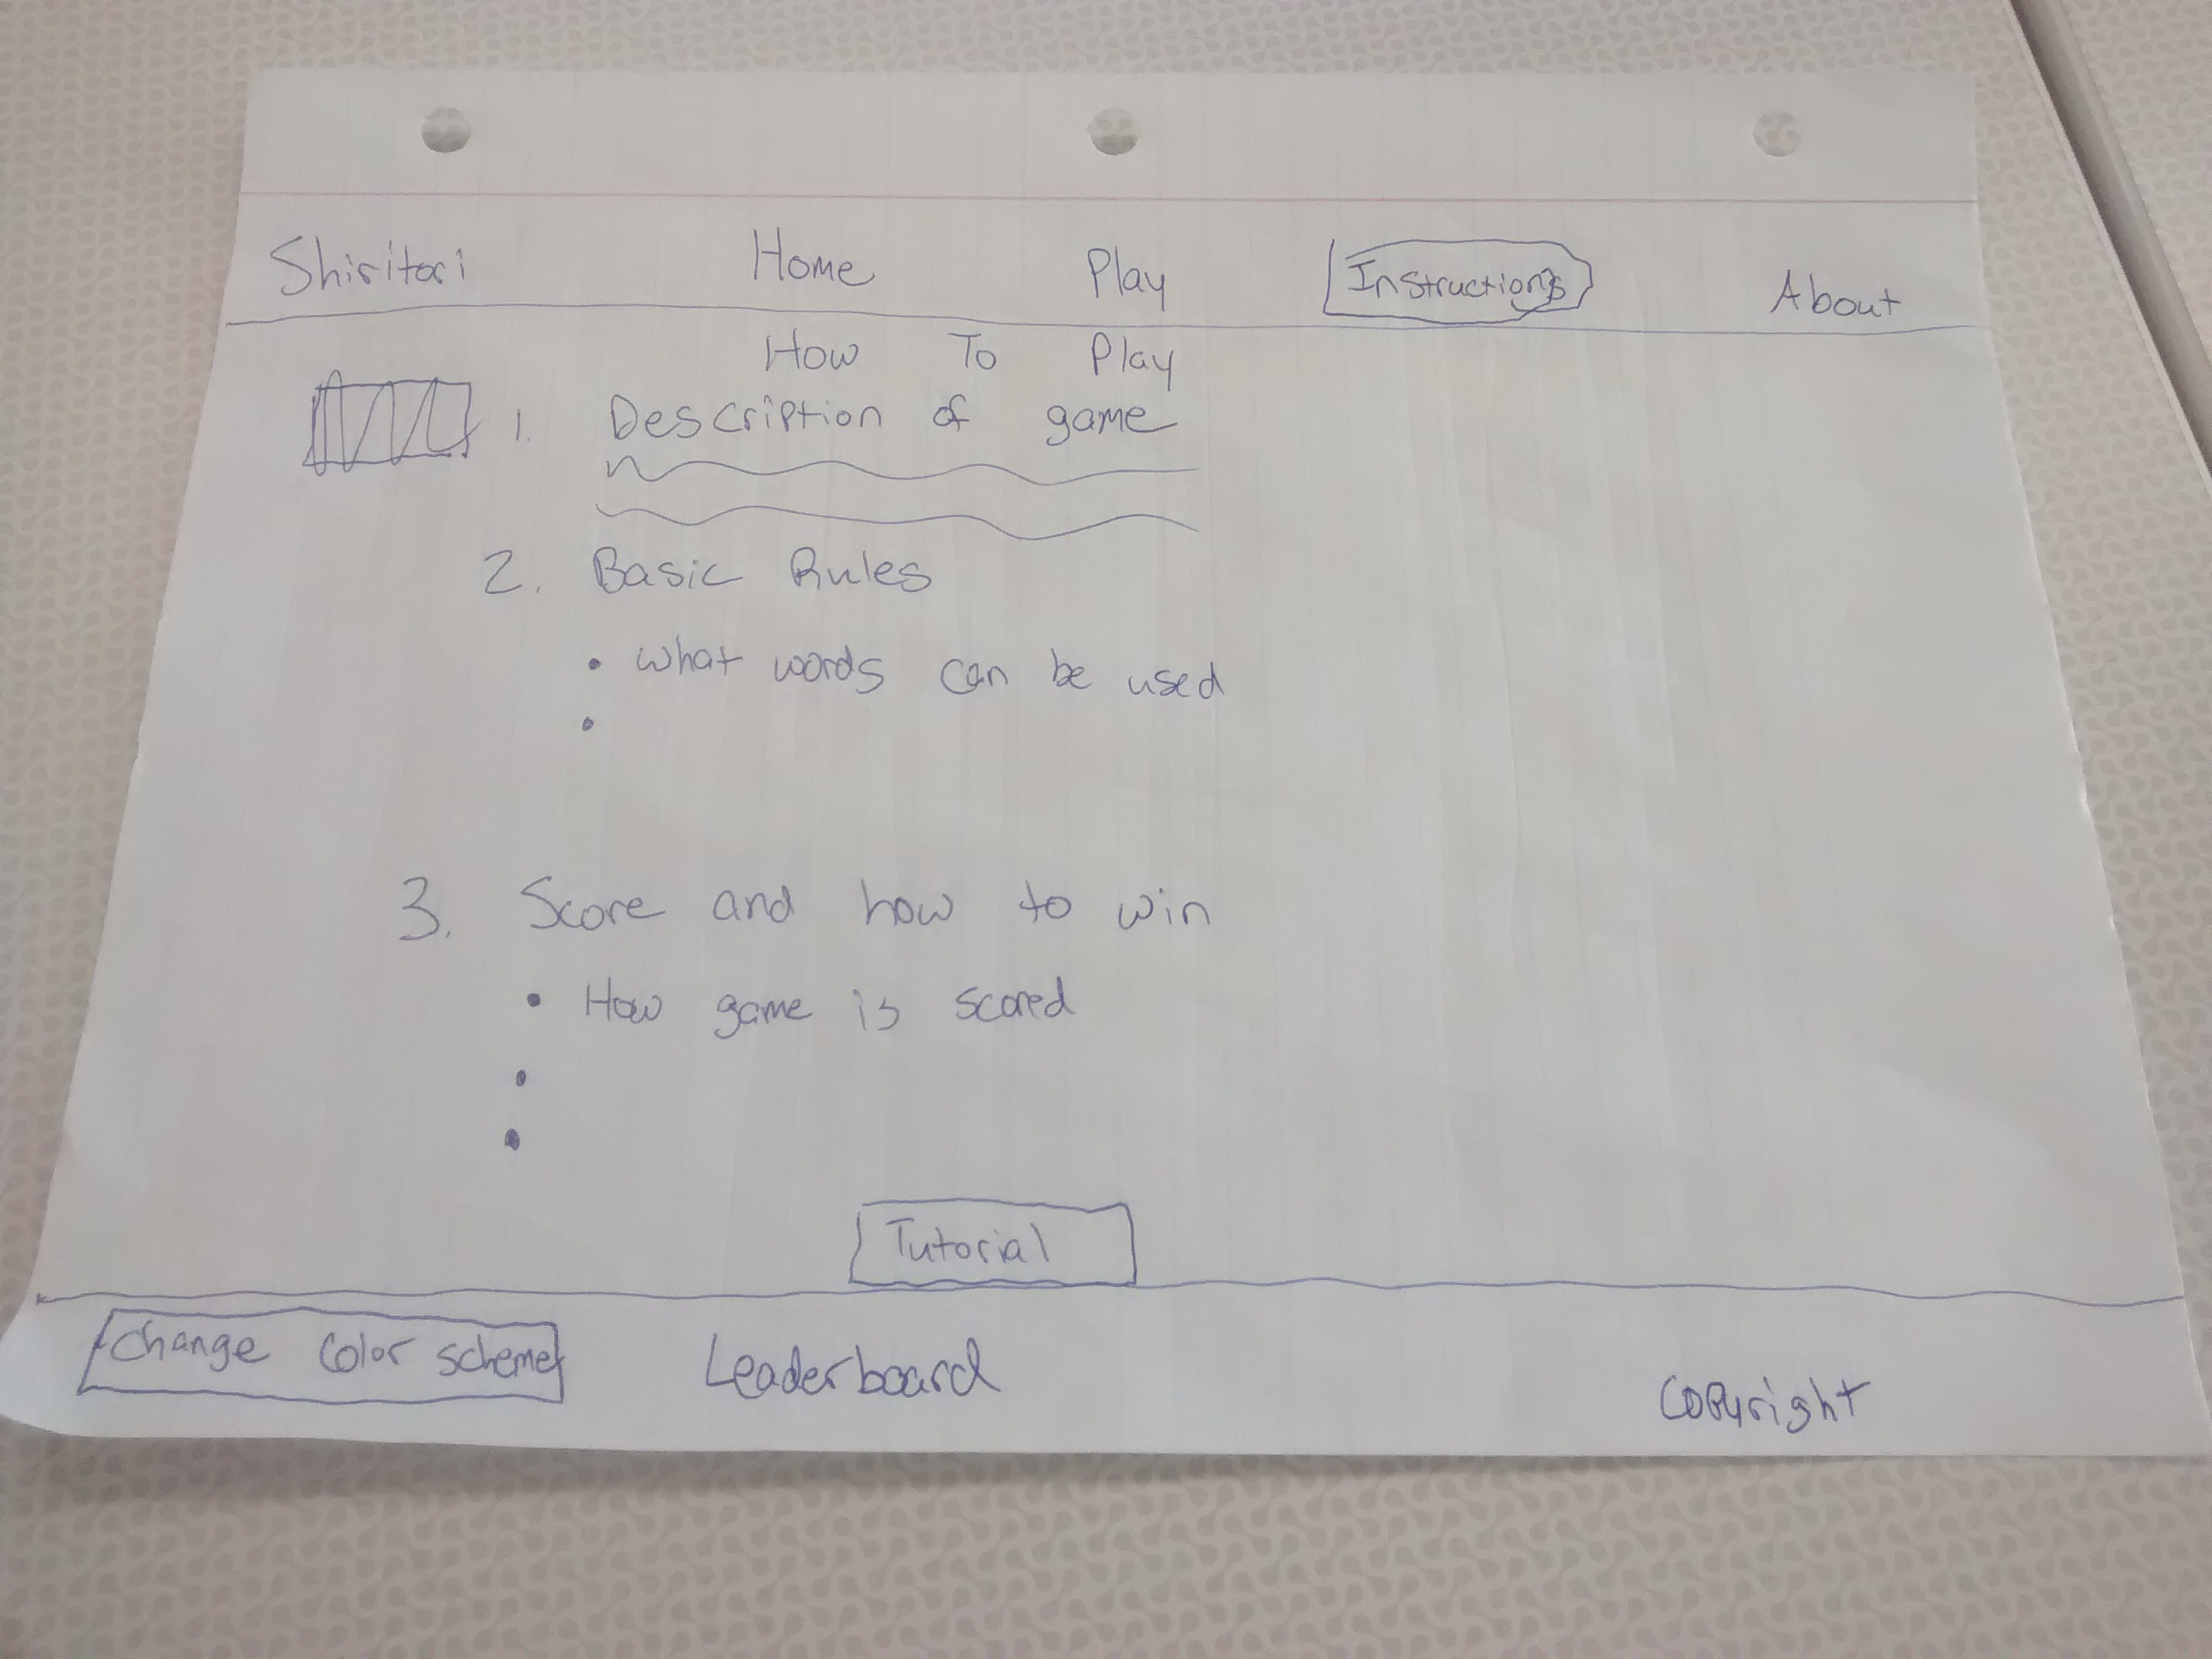 Shiritori Home Play Instructions About
How To Play
1. Description of game
2. Basic Rules
• what words can be used
•
3. Score and how to win
• How game is scored
•
•
Tutorial
Change Color scheme Leaderboard Copyright